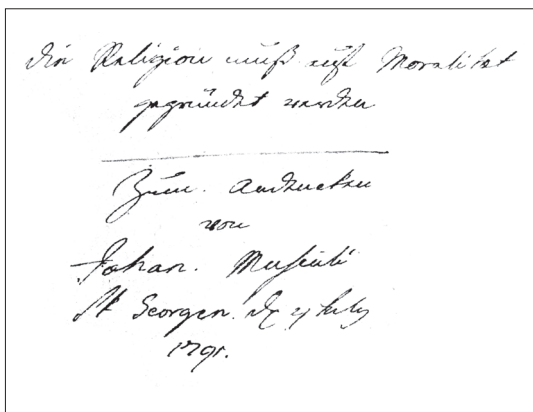 die Religion muß auf Moralität
gegründet werden
Zum Andencken
von
Johan.
St Georgen. July
1791.